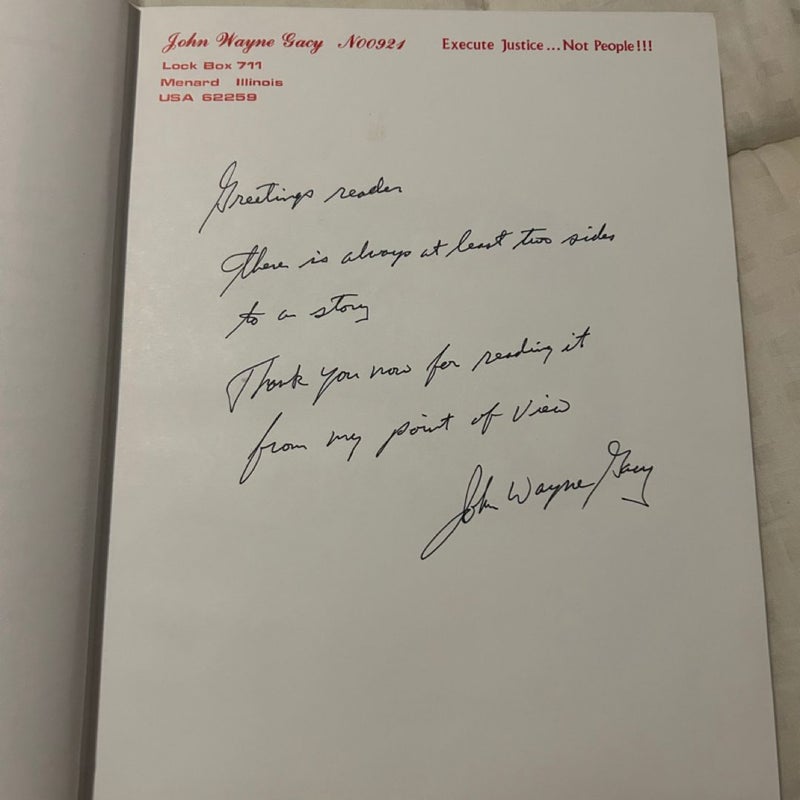 John Wayne Gacy N00921 Execute Justice...Not People!!!
Lock Box 711
Menard Illinois
USA 62259
Greetings reader
There is always at least two sides
to a story
Thank you now for reading it
from my point of view
John Wayne Gacy